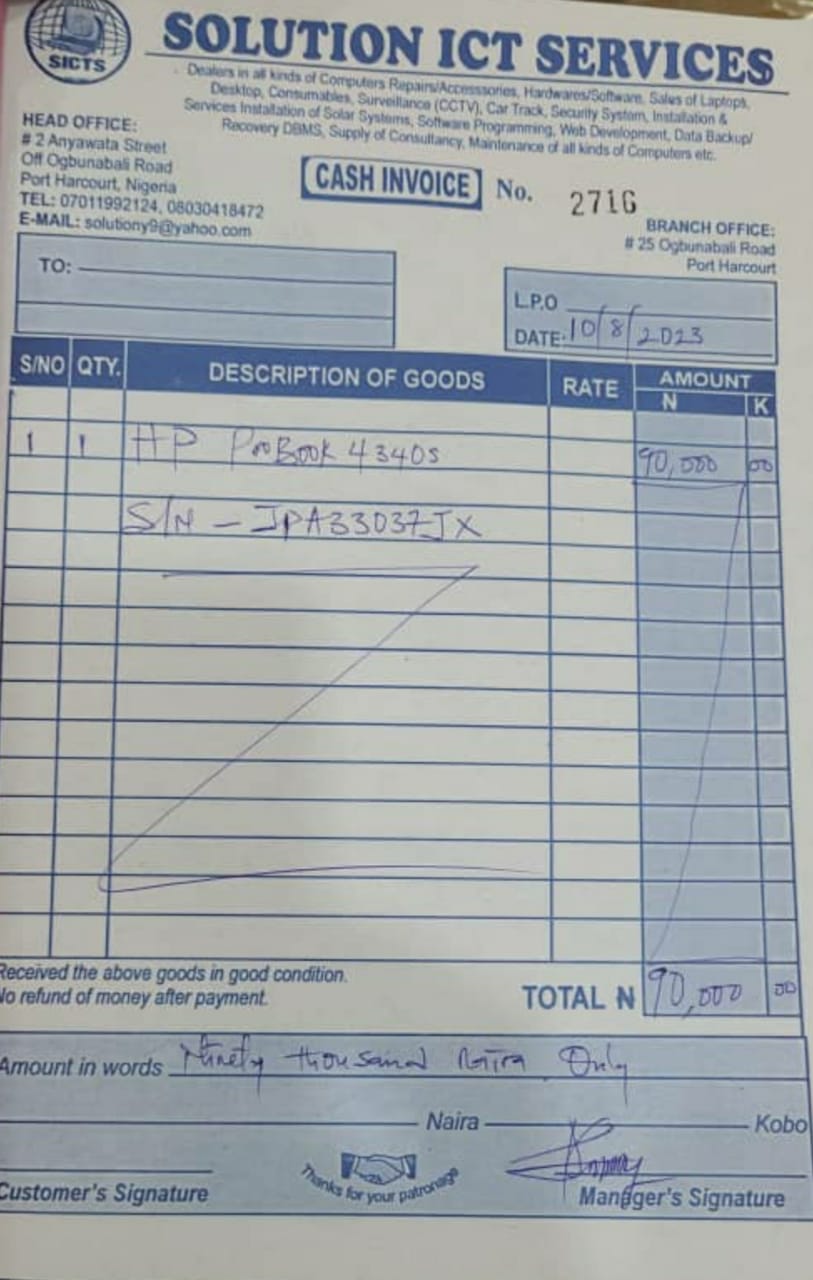 SICTS
SOLUTION ICT SERVICES
Dealers in all kinds of Computers Repairs/Accesssories, Hardwares/Software, Sales of Laptops,
Desktop, Consumables, Surveillance (CCTV), Car Track, Security System, Installation &
Services Installation of Solar Systems, Software Programming, Web Development, Data Backup/
Recovery DBMS, Supply of Consultancy, Maintenance of all kinds of Computers etc.
HEAD OFFICE:
# 2 Anyawata Street
Off Ogbunabali Road
Port Harcourt, Nigeria
TEL: 07011992124, 08030418472
E-MAIL: solutiony9@yahoo.com
CASH INVOICE No. 2716
BRANCH OFFICE:
# 25 Ogbunabali Road
Port Harcourt
TO:
L.P.O
DATE: 10/8/2023
S/NO QTY. DESCRIPTION OF GOODS RATE AMOUNT
N K
1 1 HP ProBook 4340s 90,000 00
S/N - JPA33037JX
Received the above goods in good condition.
No refund of money after payment.
TOTAL N 90,000 00
Amount in words Ninety thousand Naira Only
Naira Kobo
Thanks for your patronage
Customer's Signature Manager's Signature